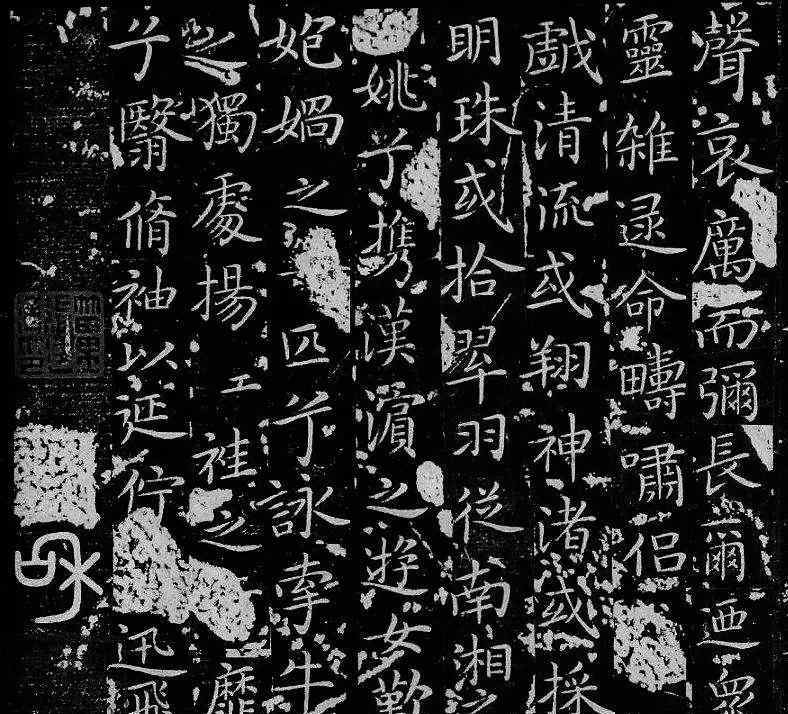 聲哀厲而彌長爾迺眾
靈雜遝命疇嘯侶
戲清流或翔神渚或採
明珠或拾翠羽從南湘之
姚兮携漢濱之遊女歎
㚿媧之匹兮詠牽牛
之獨處揚袿之靡
兮翳脩袖以延佇迅飛